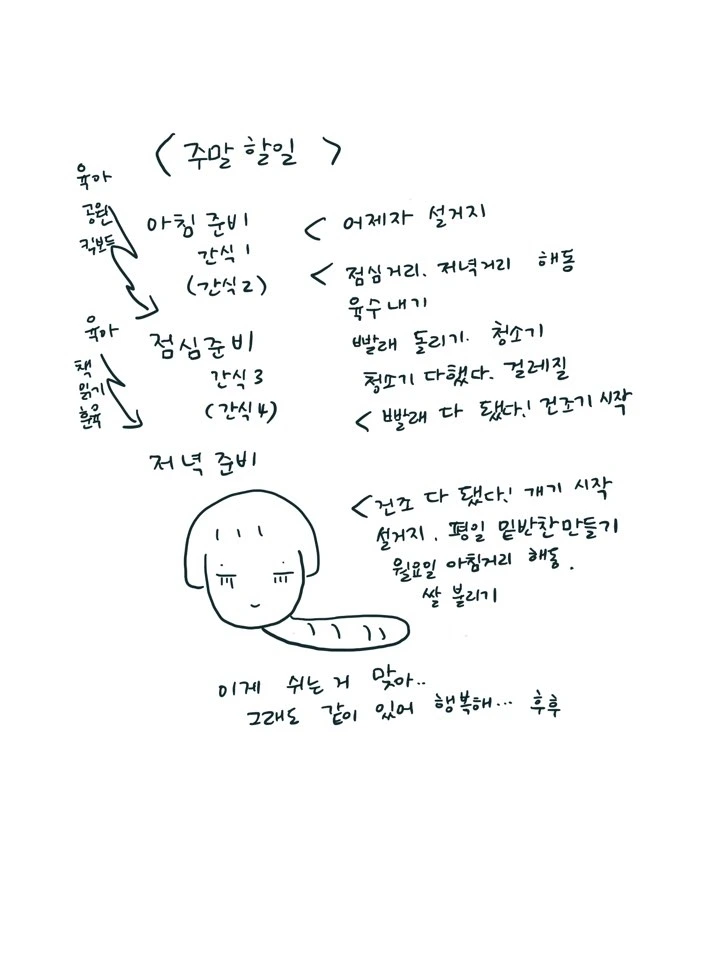 < 주말 할일 >
육아
공원
킥보드
아침 준비
간식 1
(간식 2)
< 어제자 설거지
< 점심거리. 저녁거리 해동
육수내기
빨래 돌리기. 청소기
청소기 다했다. 걸레질
< 빨래 다 됐다! 건조기 시작
육아
책
읽기
훈육
점심준비
간식 3
(간식 4)
저녁 준비
< 건조 다 됐다! 개기 시작
설거지. 평일 밑반찬만들기
월요일 아침거리 해동.
쌀 불리기
이게 쉬는거 맞아..
그래도 같이 있어 행복해... 후후